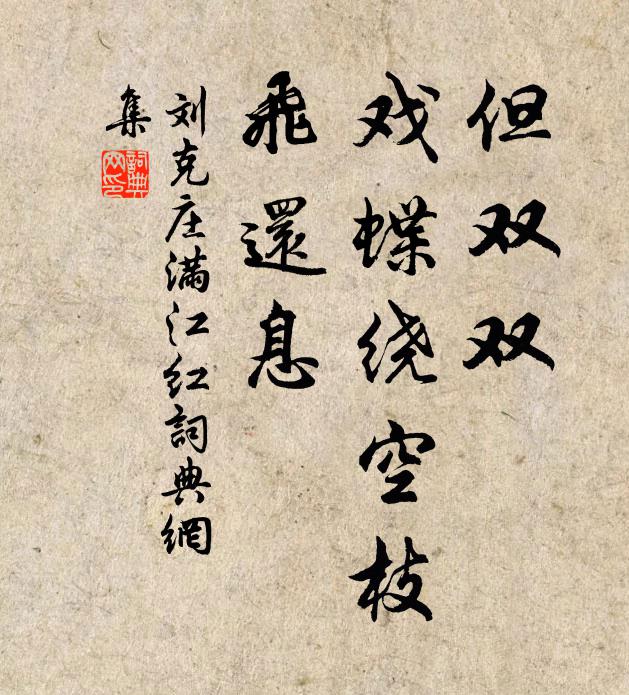 但双双
戏蝶绕空枝
飛還息
刘克庄满江红詞典網
集
詞典网印